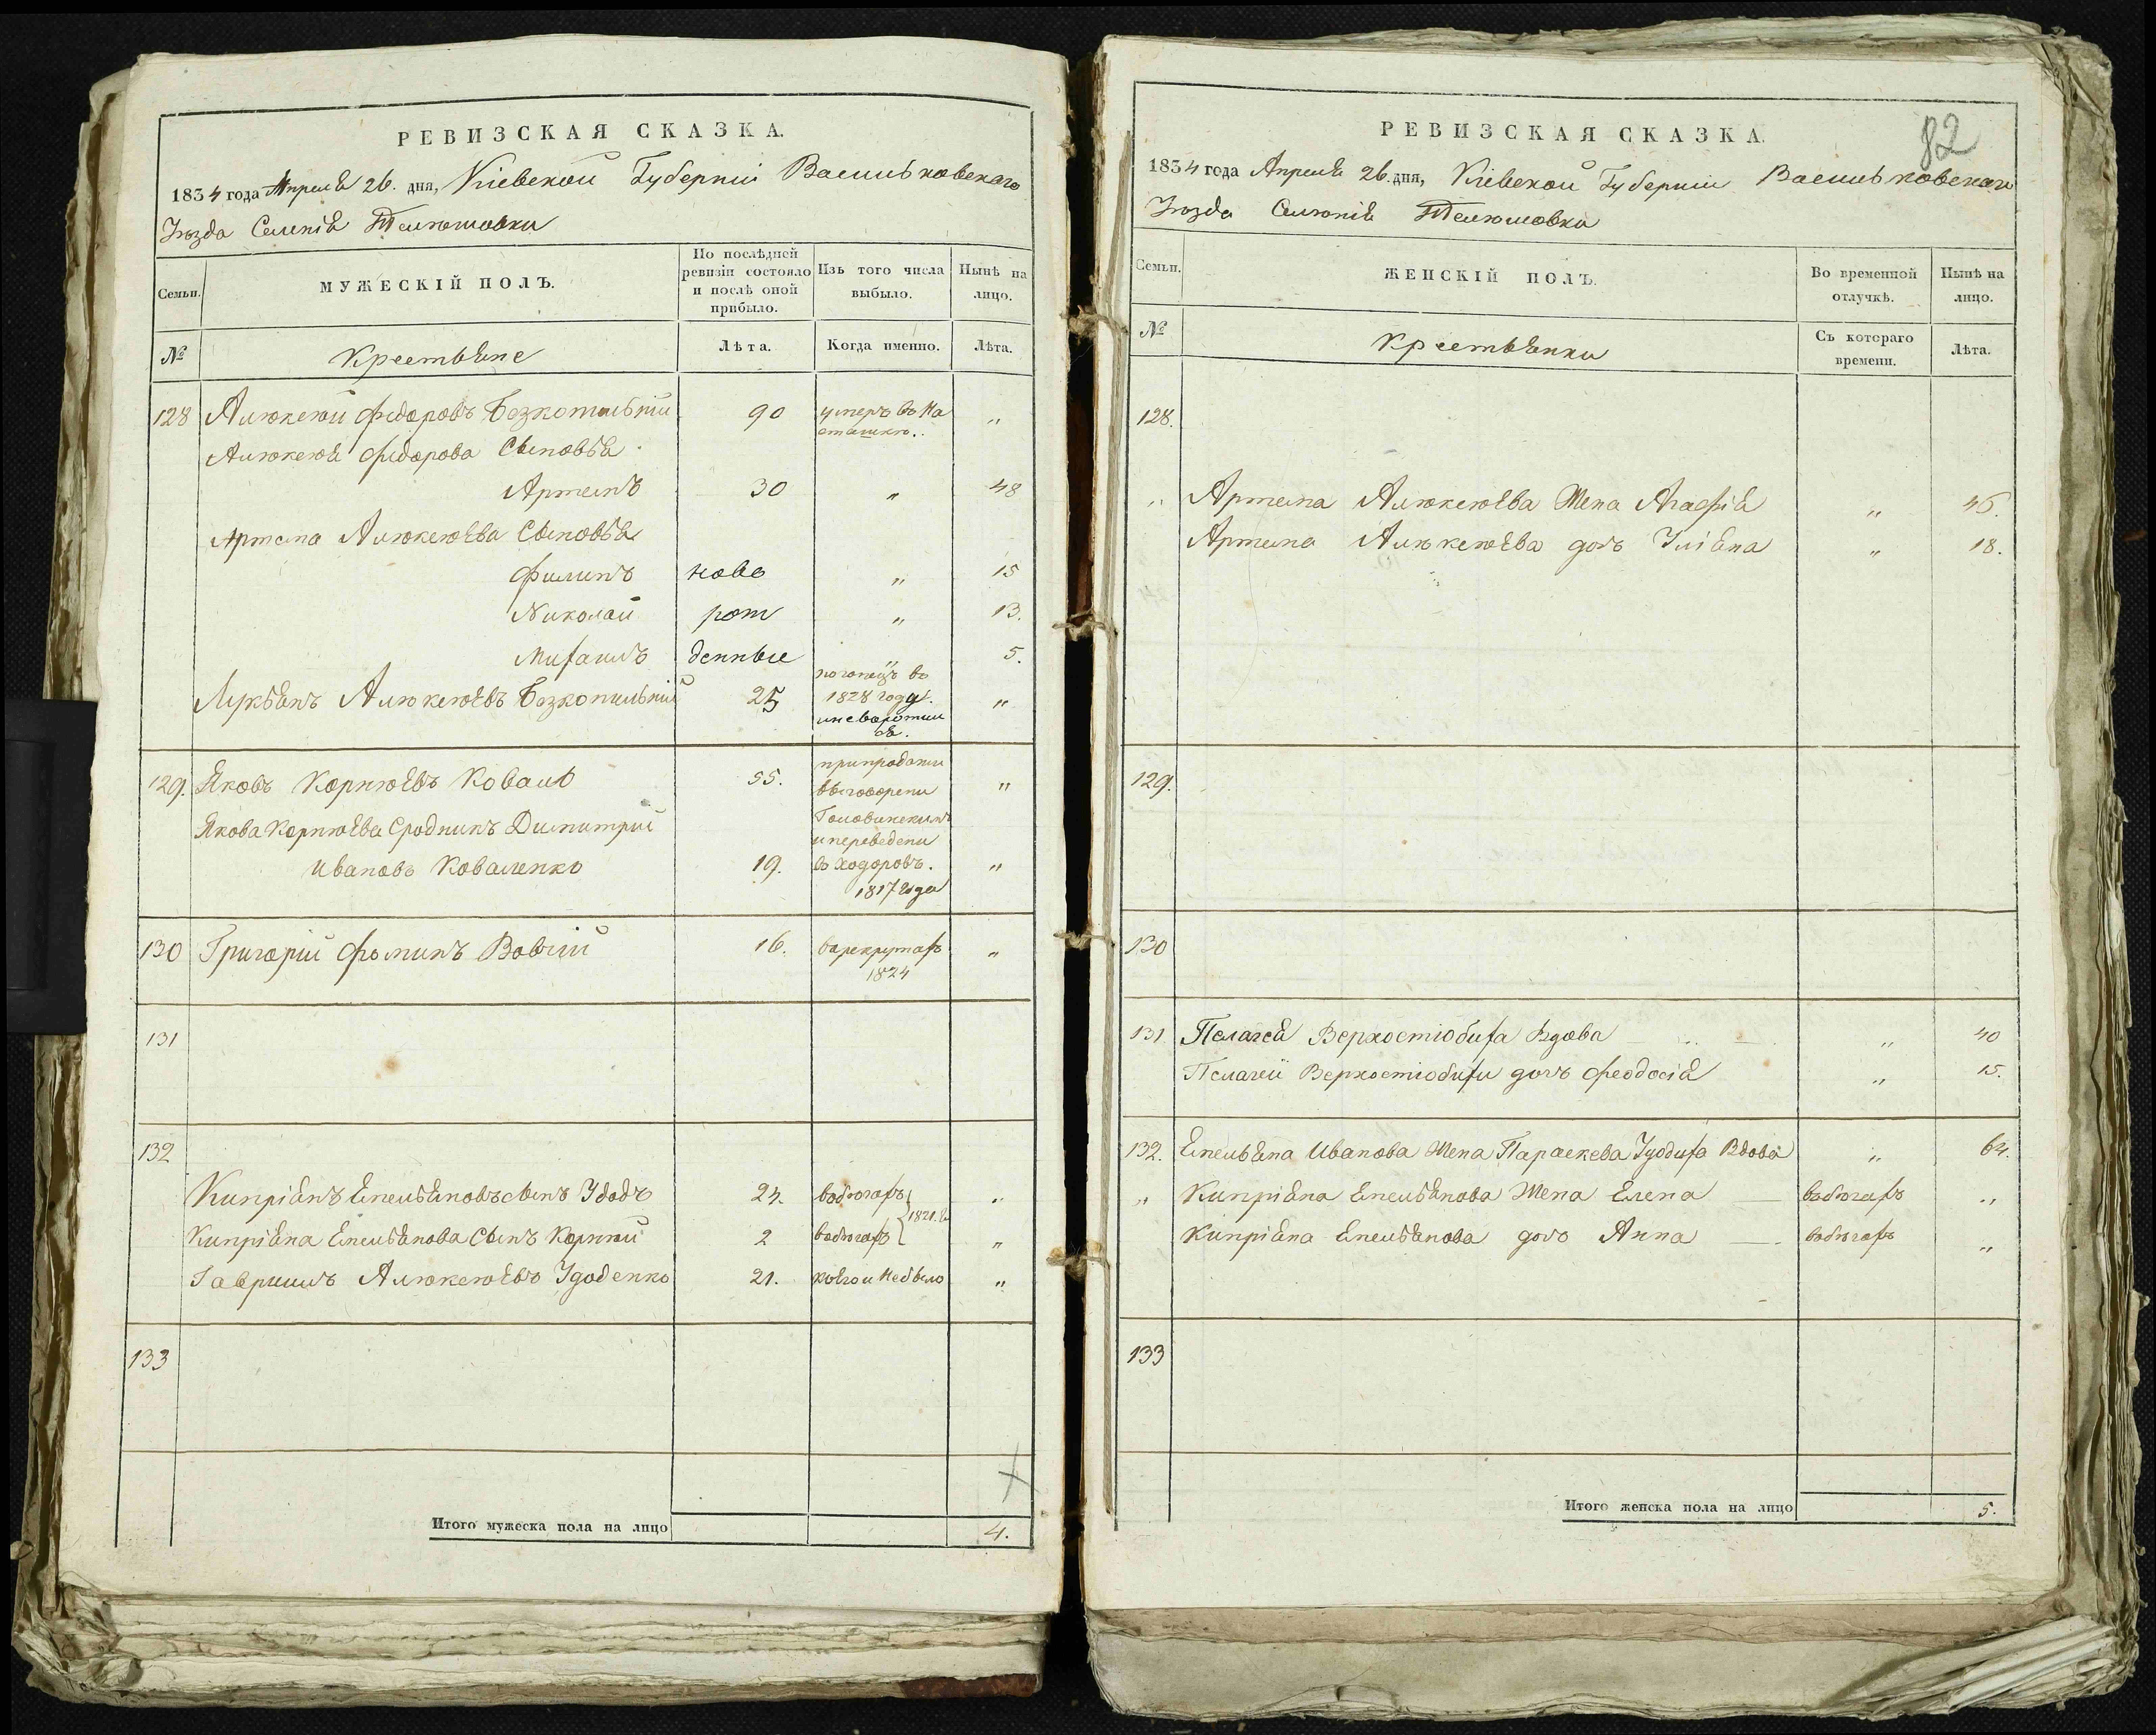 РЕВИЗСКАЯ СКАЗКА.
1834 года Апреля 26. дня, Кіевской Губерніи Васильковскаго
Уѣзда Селенія Телѣшовки
Семьи.
МУЖЕСКІЙ ПОЛЪ.
По послѣдней ревизіи состояло и послѣ оной прибыло.
Изъ того числа выбыло.
Нынѣ на лицо.
№
Крестьяне
Лѣта.
Когда именно.
Лѣта.
128 Алѣксѣй Федоровъ Безкопыльній 90 умеръ въ На „
сташкѣ.
Алѣксѣя Федорова Сыновья
Артемъ 30 „ 48
Артема Алѣксѣева Сыновья
Филипъ ново „ 15
Николай рож „ 13.
Михаилъ денные 5.
Лукьянъ Алѣксѣевъ Безкопыльній 25 „
во
1828 году.
129. Яковъ Корнѣевъ Коваль 55. припродажи „
выговорени
Якова Корнѣева Сродникъ Димитрій
ипереведени
Ивановъ Коваленко 19. въ Ходоровъ. „
1817 года
130 Григорій Фоминъ Вовчій 16. варекрутахъ „
1824
131
132
Кипріянъ Емельяновъ сынъ Удодъ 24. вобѣгахъ „
1821.
Кипріяна Емельянова Сынъ Корній 2 вобѣгахъ „
Гаврішлъ Алѣксѣевъ Удоденко 21. „
133
Итого мужеска пола на лицо 4.
82
РЕВИЗСКАЯ СКАЗКА.
1834 года Апреля 26. дня, Кіевской Губерніи Васильковскаго
Уѣзда Селѣнія Телѣшовки
Семьи.
ЖЕНСКІЙ ПОЛЪ.
Во временной отлучкѣ.
Нынѣ на лицо.
№
Крестьянки
Съ котораго времени.
Лѣта.
128.
„ Артема Алѣксѣева Жена Агафія „ 45.
Артема Алѣксѣева дочь Уліяна „ 18.
129.
130
131 Пелагея Верхостюбиха Вдова „ 40
Пелагеи Верхостюбихи дочь Феодосія „ 15.
132. Емельяна Иванова Жена Параскева Удодиха Вдова „ 64.
„ Кипріяна Емельянова Жена Елена вобѣгахъ „
Кипріяна Емельянова дочь Анна вобѣгахъ „
133
Итого женска пола на лицо 5.